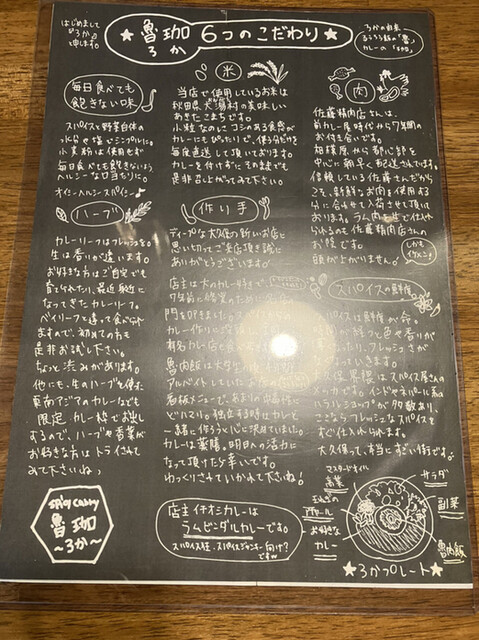 はじめまして
「ろか」
と申します。
★ 魯珈 6つのこだわり ★
ろか
ろかの由来
るうろう飯の「魯」
カレーの「珈」
毎日食べても
飽きない味
スパイスと野菜自体の
水分で塩でシンプルに。
小麦粉は使用せず
毎日食べても飽きないよう
ヘルシーな口当たりに。
オイシイヘルシースパイシー♪
ハーブ
カレーリーフはフレッシュを。
生は香りが違います。
お好きな方はご自宅でも
育てられたり、最近身近に
なってきたカレーリーフ。
ベイリーフと違って食べられ
ますので、初めての方も
是非お試し下さい。
ちょっと渋みがあります。
他にも、生のハーブを使った
東南アジアのカレーなども
限定カレー枠でお出し
するので、ハーブや香菜が
お好きな方はトライされて
みて下さいね♪
spicy curry
魯珈
～ろか～
米
当店で使用しているお米は
秋田県大潟村の美味しい
あきたこまちです。
小粒なのにコシのある食感が
カレーにもぴったりで、使う分だけを
毎度直送して頂いております。
カレーを付けずに、そのままでも
是非召し上がってみて下さい。
作り手
ディープな大久保の新しいお店に
思い切ってご来店頂き誠に
ありがとうございます。
店主は大のカレー好きで、
カレー作りに没頭し、
有名カレー店
魯肉飯は大学生の
アルバイトしていた
看板メニューで、あまりの
にどハマり。独立する時はカレーと
一緒に作ろうと心に決めていました。
カレーは薬膳。明日への活力に
なって頂けたら幸いです。
ゆっくりされていかれて下さいね♪
店主イチオシカレーは
ラムビンダルカレーです。
スパイス狂・スパイスジャンキー向け?
ですw
肉
佐藤精肉店さんは、
前カレー屋時代から7年間の
お付き合いです。
相模原から都心部を
中心に朝早く配送さんです。
信頼している佐藤さんだから
こそ、新鮮なお肉を使用する
分に合わせて入荷させて頂いて
おります。ラム肉を生で仕入れ
られるのも佐藤精肉店さんの
お陰です。
頭が上がりません。
しかも
イケメン!
スパイスの鮮度
スパイスは鮮度が命。
時間が経つと色や香りが
フレッシュさが
いきます。
大久保界隈はスパイス屋さんの
メッカです。インドやネパール系の
ハラルショップが多数あり、
ここならフレッシュなスパイスを
すぐ仕入れられます。
大久保って、本当にすごい街です。
マスタードオイル
高菜
玉ねぎの
アチャール
お好きな
カレー
サラダ
副菜
魯肉飯
★ろかプレート★